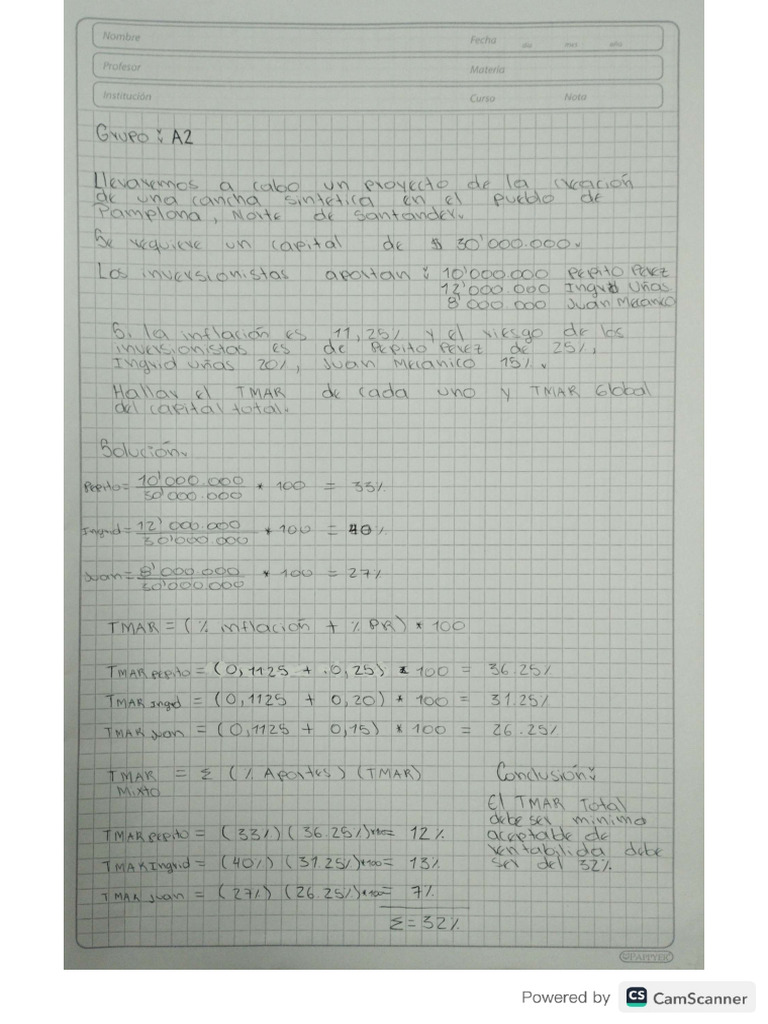 Nombre Fecha día mes año
Profesor Materia
Institución Curso Nota
Grupo: A2
Llevaremos a cabo un proyecto de la creación
de una cancha sintetica en el pueblo de
Pamplona, Norte de Santander.
Se requiere un capital de $ 30'000.000.
Los inversionistas aportan: 10'000.000 Pepito Perez
12'000.000 Ingrid Uñas
8'000.000 Juan Mecanico
S. la inflación es 11,25% y el riesgo de los
inversionistas es de Pepito Perez de 25%,
Ingrid Uñas 20%, Juan Mecanico 15%.
Hallar el TMAR de cada uno y TMAR Global
del capital total.
Solución.
Pepito = 10'000.000 / 30'000.000 * 100 = 33%
Ingrid = 12'000.000 / 30'000.000 * 100 = 40%
Juan = 8'000.000 / 30'000.000 * 100 = 27%
TMAR = (% inflación + % PR) * 100
TMAR Pepito = (0,1125 + 0,25) * 100 = 36.25%
TMAR Ingrid = (0,1125 + 0,20) * 100 = 31.25%
TMAR Juan = (0,1125 + 0,15) * 100 = 26.25%
TMAR Mixto = Σ (% Aportes) (TMAR)
TMAR Pepito = (33%) (36.25%)*100= 12%
TMAR Ingrid = (40%) (31.25%)*100= 13%
TMAR Juan = (27%) (26.25%)*100= 7%
Σ = 32%
Conclusión:
El TMAR Total
debe ser minimo
aceptable de
rentabilida debe
ser del 32%
PAPYER
Powered by CS CamScanner